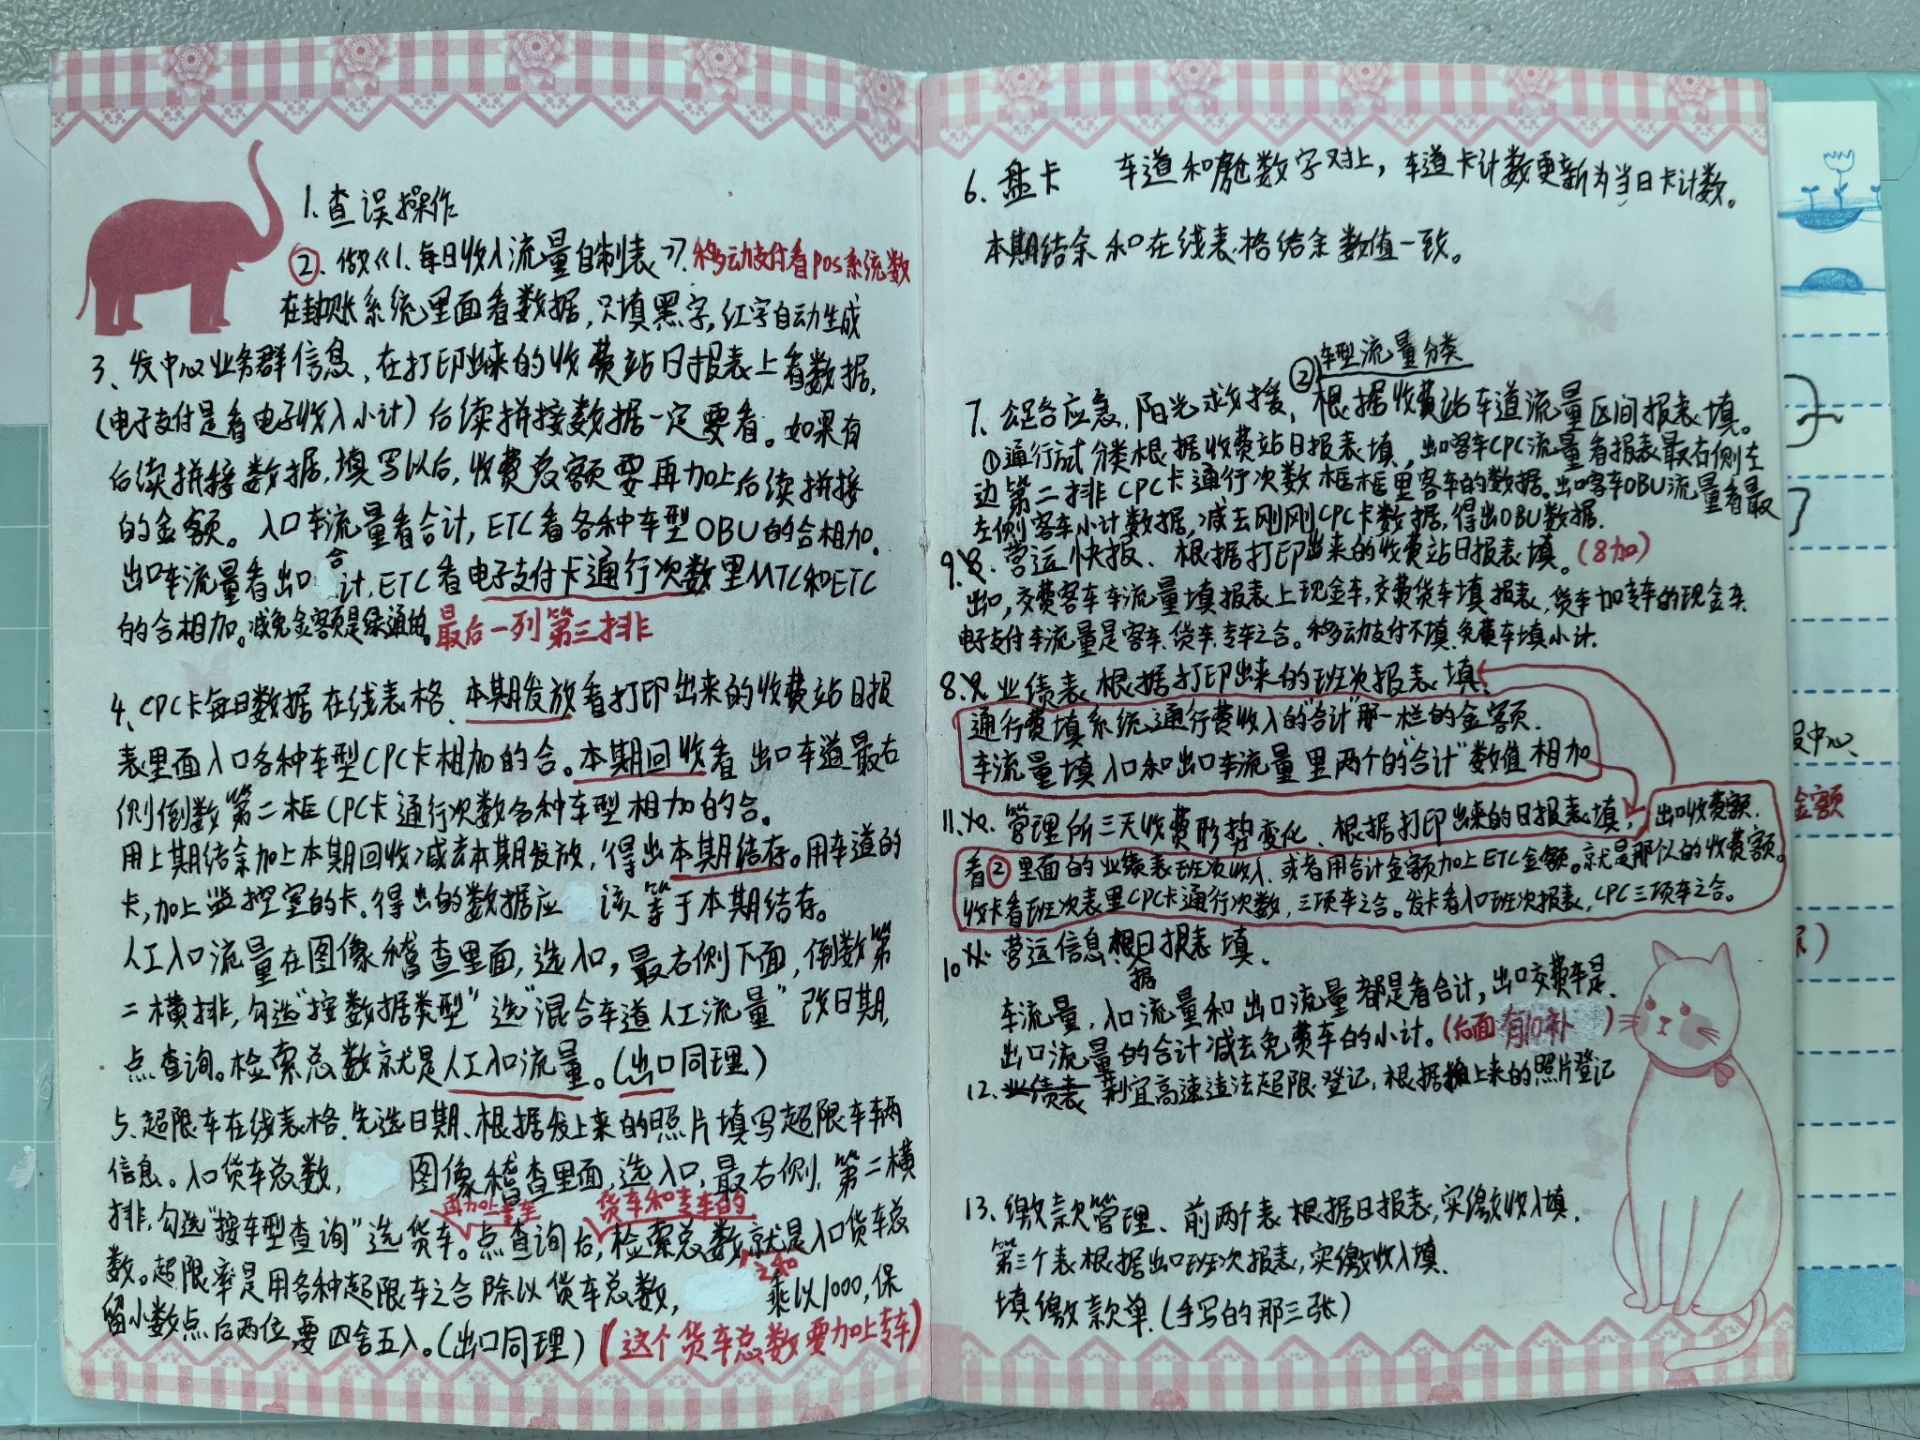 1.查误操作
②、做《1.每日收入流量自制表》.移动支付看pos系统数
在封账系统里面看数据,只填黑字,红字自动生成
3、发中心业务群信息,在打印出来的收费站日报表上看数据,
(电子支付是看电子收入小计)后续拼接数据一定要看。如果有
后续拼接数据,填写以后,收费总额要再加上后续拼接
的金额。入口车流量看合计,ETC看各种车型OBU的合相加.
出口车流量看出口合计,ETC看电子支付卡通行次数里MTC和ETC
的合相加。减免金额是绿通的。最后一列第三排
4、CPC卡每日数据在线表格、本期发放看打印出来的收费站日报
表里面入口各种车型CPC卡相加的合。本期回收看出口车道最右
侧倒数第二框CPC卡通行次数各种车型相加的合。
用上期结余加上本期回收减去本期发放,得出本期结存。用车道的
卡,加上监控室的卡.得出的数据应该等于本期结存。
人工入口流量在图像稽查里面,选入口,最右侧下面,倒数第
二横排,勾选"按数据类型"选"混合车道人工流量"改日期,
点查询。检索总数就是人工入口流量。(出口同理)
5、超限车在线表格.先选日期、根据发上来的照片填写超限车辆
信息。入口货车总数, 图像稽查里面,选入口,最右侧,第二横
再加上专车 货车和专车的
排,勾选"按车型查询"选货车。点查询后,检索总数就是入口货车总
之和
数。超限率是用各种超限车之合除以货车总数, 乘以1000,保
留小数点后两位,要四舍五入。(出口同理)(这个货车总数要加上专车)
6、盘卡 车道和舱数字对上,车道卡计数更新为当日卡计数。
本期结余和在线表格结余数值一致。
②车型流量分类
7、应急,阳光救援,根据收费站车道流量区间报表填。
①通行方式分类根据收费站日报表填,出口客车CPC流量看报表最右侧左
边第二排CPC卡通行次数框框里客车的数据。出口客车OBU流量看最
左侧客车小计数据,减去刚刚CPC卡数据,得出OBU数据.
9.营运快报、根据打印出来的收费站日报表填。(8加)
出口,交费客车车流量填报表上现金车,交费货车填报表,货车加专车的现金车.
电子支付车流量是客车.货车.专车之合。移动支付不填.免费车填小计.
8.业绩表根据打印出来的"班次报表"填.
通行费填系统.通行费收入的"合计"那一栏的金额.
车流量填入口和出口车流量里两个的"合计"数值相加
11.管理所三天收费形势变化、根据打印出来的日报表填,出口收费额.
看②里面的业绩表班次收入.或者用合计金额加上ETC金额。就是那似的收费额。
收卡看班次表里CPC卡通行次数,三项车之合。发卡看入口班次报表,CPC三项车之合。
10.营运信息.根据日报表填.
车流量,入口流量和出口流量都是看合计,出口交费车是.
出口流量的合计减去免费车的小计。(后面有10补)
12、业绩表 荆宜高速违法超限登记,根据拍上来的照片登记
13、缴款管理、前两个表根据日报表,实缴收入填.
第三个表根据出口班次报表,实缴收入填.
填缴款单.(手写的那三张)
中心、
金额